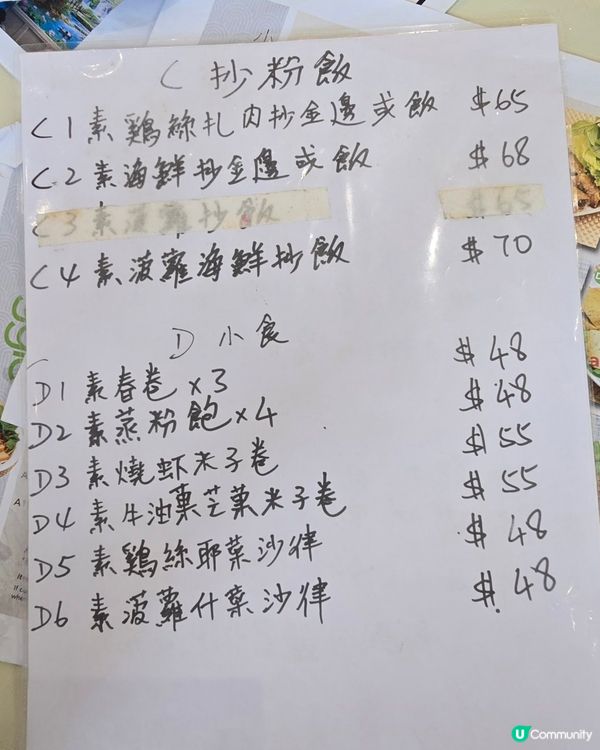 C 抄粉飯
C1 素鷄絲扎肉抄金邊或飯 $65
C.2 素海鮮抄金邊或飯 $68
C3 素菠蘿抄飯 $65
C4 素菠蘿海鮮抄飯 $70
D 小食
D1 素春卷x3 $48
D2 素蒸粉飽x4 $48
D3 素燒虾米子卷 $55
D4 素牛油菓芒菓米子卷 $55
D5 素鷄絲耶菜沙律 $48
D6 素菠蘿什菜沙律 $48
U Community